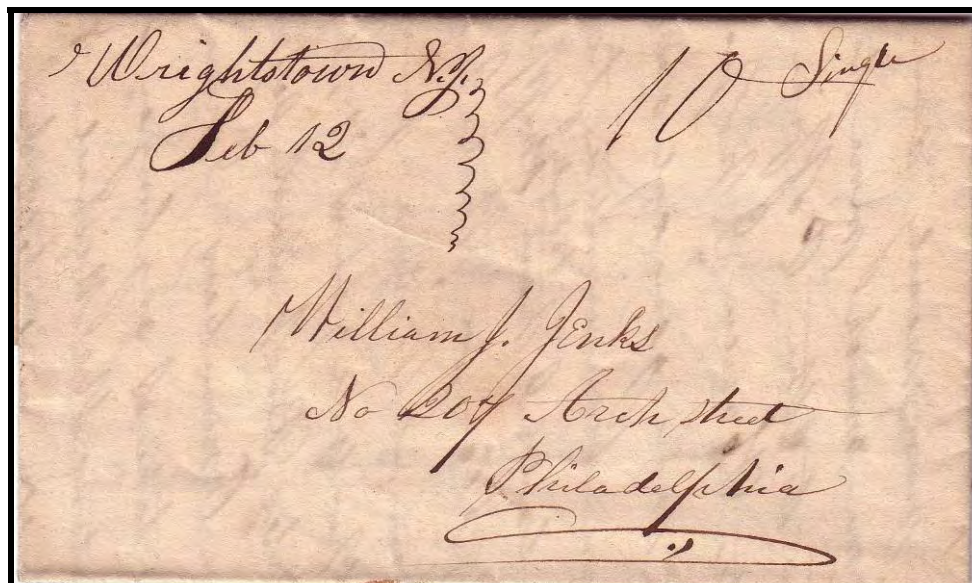 Wrightstown N.J.
Feb 12
10 Single
William J. Jenks
No 207 Arch street
Philadelphia